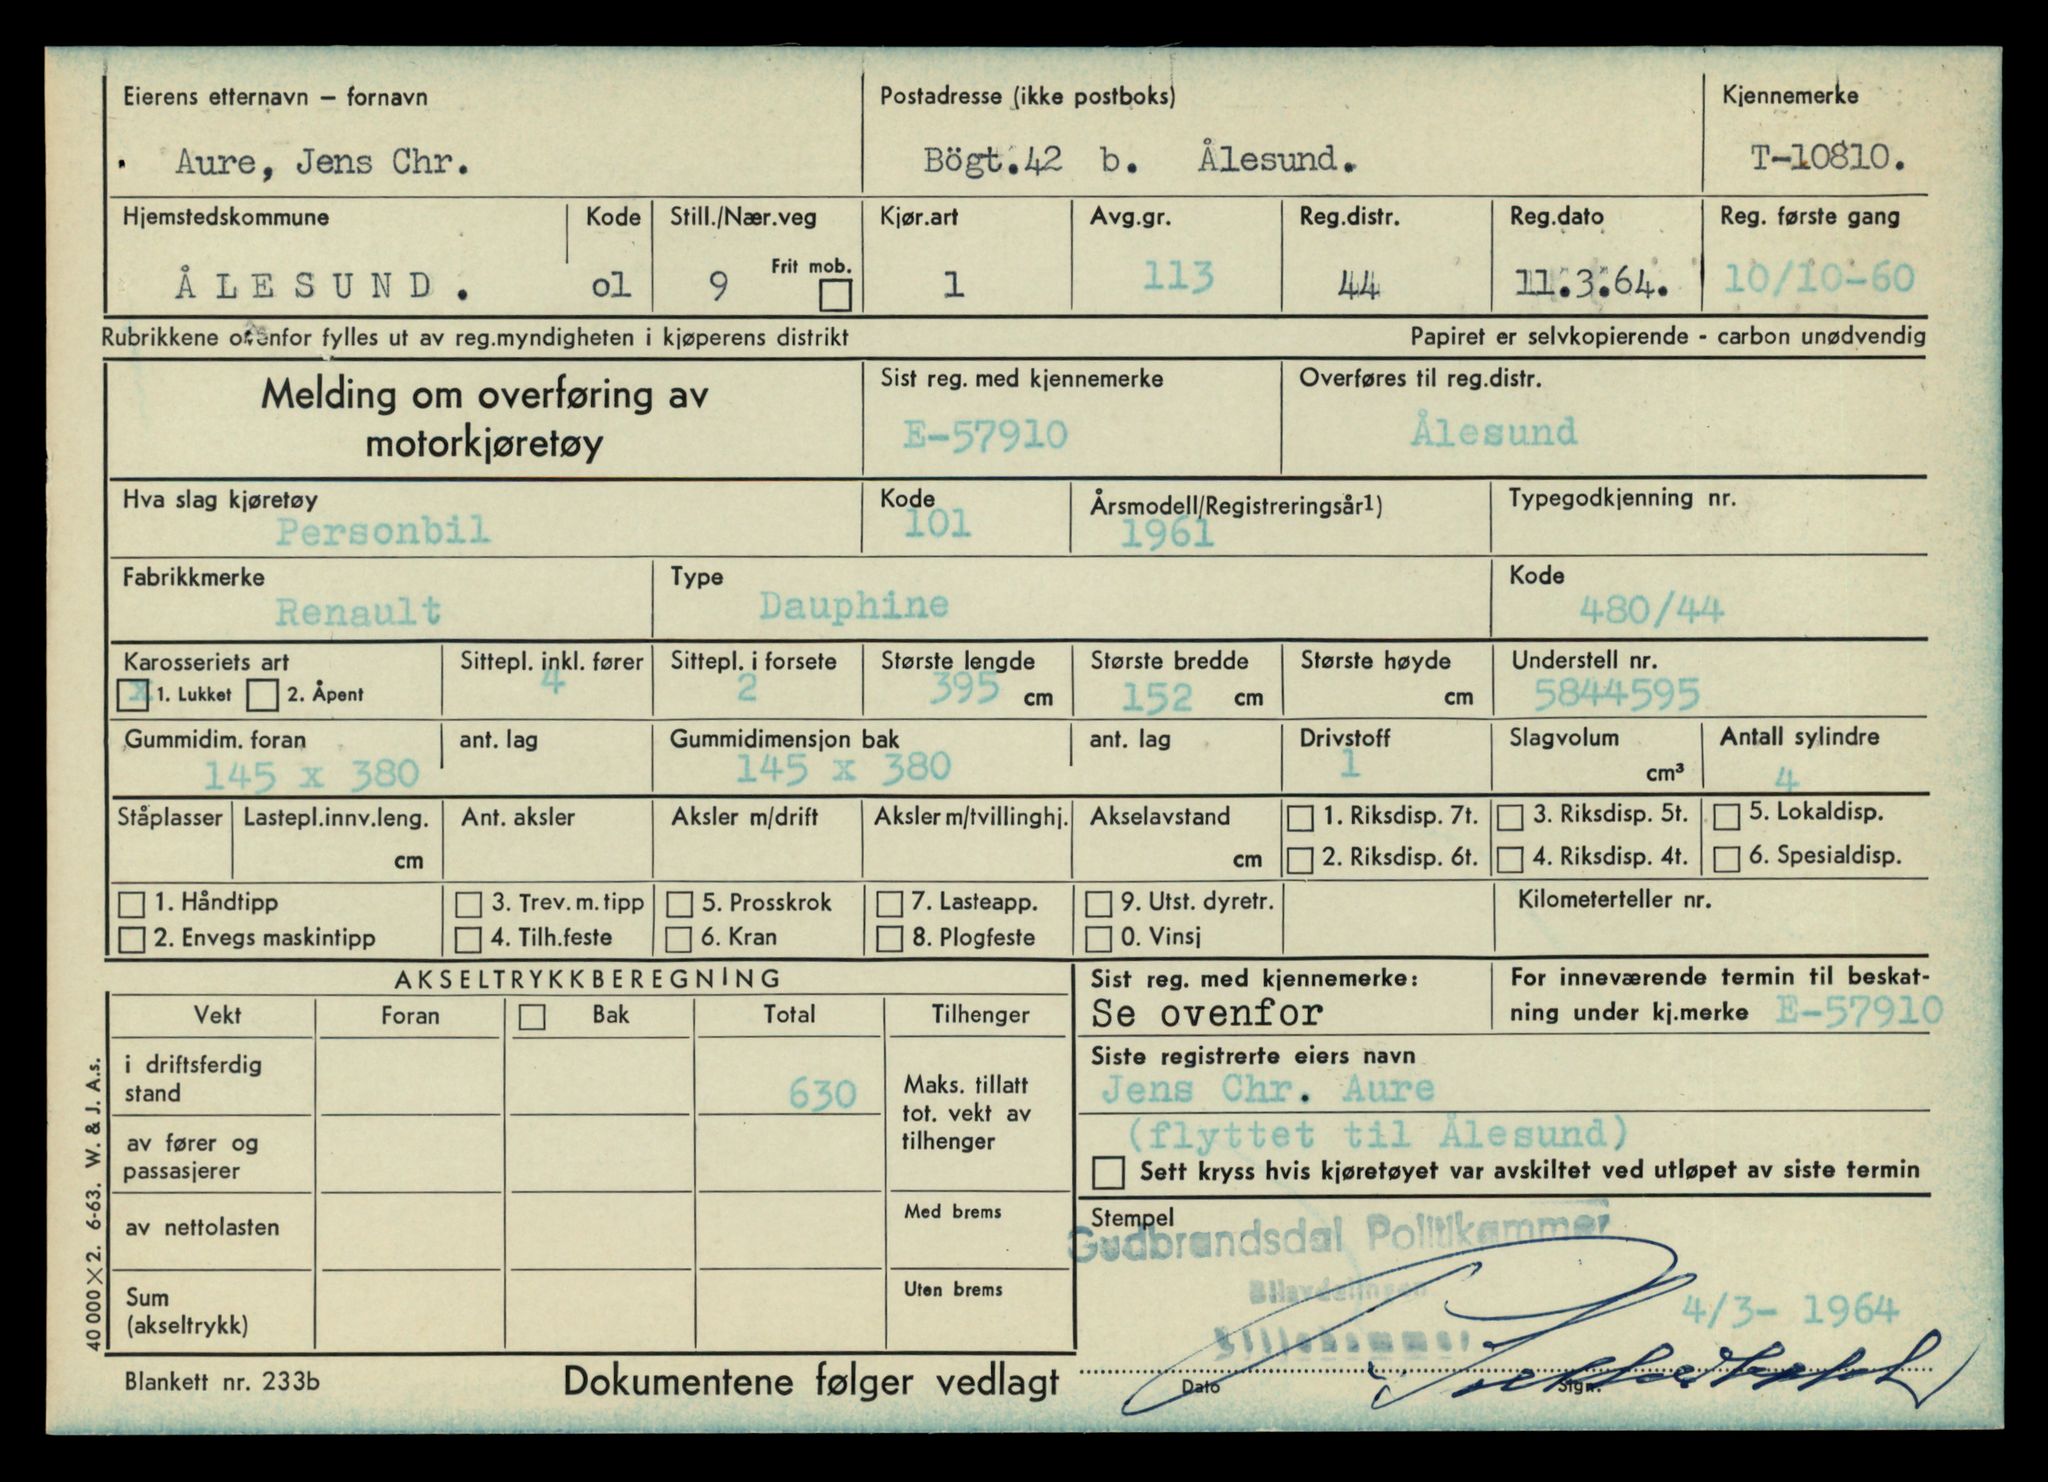 Eierens etternavn – fornavn
Aure, Jens Chr.
Postadresse (ikke postboks)
Bögt.42 b. Ålesund.
Kjennemerke
T-10810.
Hjemstedskommune
ÅLESUND.
Kode
o1
Still./Nær.veg
9
Frit mob.
Kjør.art
1
Avg.gr.
113
Reg.distr.
44
Reg.dato
11.3.64.
Reg. første gang
10/10-60
Rubrikkene ovenfor fylles ut av reg.myndigheten i kjøperens distrikt
Papiret er selvkopierende - carbon unødvendig
Melding om overføring av
motorkjøretøy
Sist reg. med kjennemerke
E-57910
Overføres til reg.distr.
Ålesund
Hva slag kjøretøy
Personbil
Kode
101
Årsmodell/Registreringsår1)
1961
Typegodkjenning nr.
Fabrikkmerke
Renault
Type
Dauphine
Kode
480/44
Karosseriets art
x 1. Lukket 2. Åpent
Sittepl. inkl. fører
4
Sittepl. i forsete
2
Største lengde
395 cm
Største bredde
152 cm
Største høyde
cm
Understell nr.
5844595
Gummidim. foran
145 x 380
ant. lag
Gummidimensjon bak
145 x 380
ant. lag
Drivstoff
1
Slagvolum
cm³
Antall sylindre
4
Ståplasser
Lastepl.innv.leng.
cm
Ant. aksler
Aksler m/drift
Aksler m/tvillinghj.
Akselavstand
cm
1. Riksdisp. 7t.
2. Riksdisp. 6t.
3. Riksdisp. 5t.
4. Riksdisp. 4t.
5. Lokaldisp.
6. Spesialdisp.
1. Håndtipp
2. Envegs maskintipp
3. Trev. m. tipp
4. Tilh.feste
5. Prosskrok
6. Kran
7. Lasteapp.
8. Plogfeste
9. Utst. dyretr.
0. Vinsj
Kilometerteller nr.
AKSELTRYKKBEREGNING
Vekt Foran Bak Total Tilhenger
i driftsferdig
stand
630
Maks. tillatt
tot. vekt av
tilhenger
av fører og
passasjerer
av nettolasten
Med brems
Sum
(akseltrykk)
Uten brems
Sist reg. med kjennemerke:
Se ovenfor
For inneværende termin til beskat-
ning under kj.merke E-57910
Siste registrerte eiers navn
Jens Chr. Aure
(flyttet til Ålesund)
Sett kryss hvis kjøretøyet var avskiltet ved utløpet av siste termin
Stempel
Gudbrandsdal Politikammer
Bilavdelingen
Lillehammer
4/3- 1964
Dato
Sign.
40 000 × 2. 6-63. W. & J. A.s.
Blankett nr. 233b
Dokumentene følger vedlagt